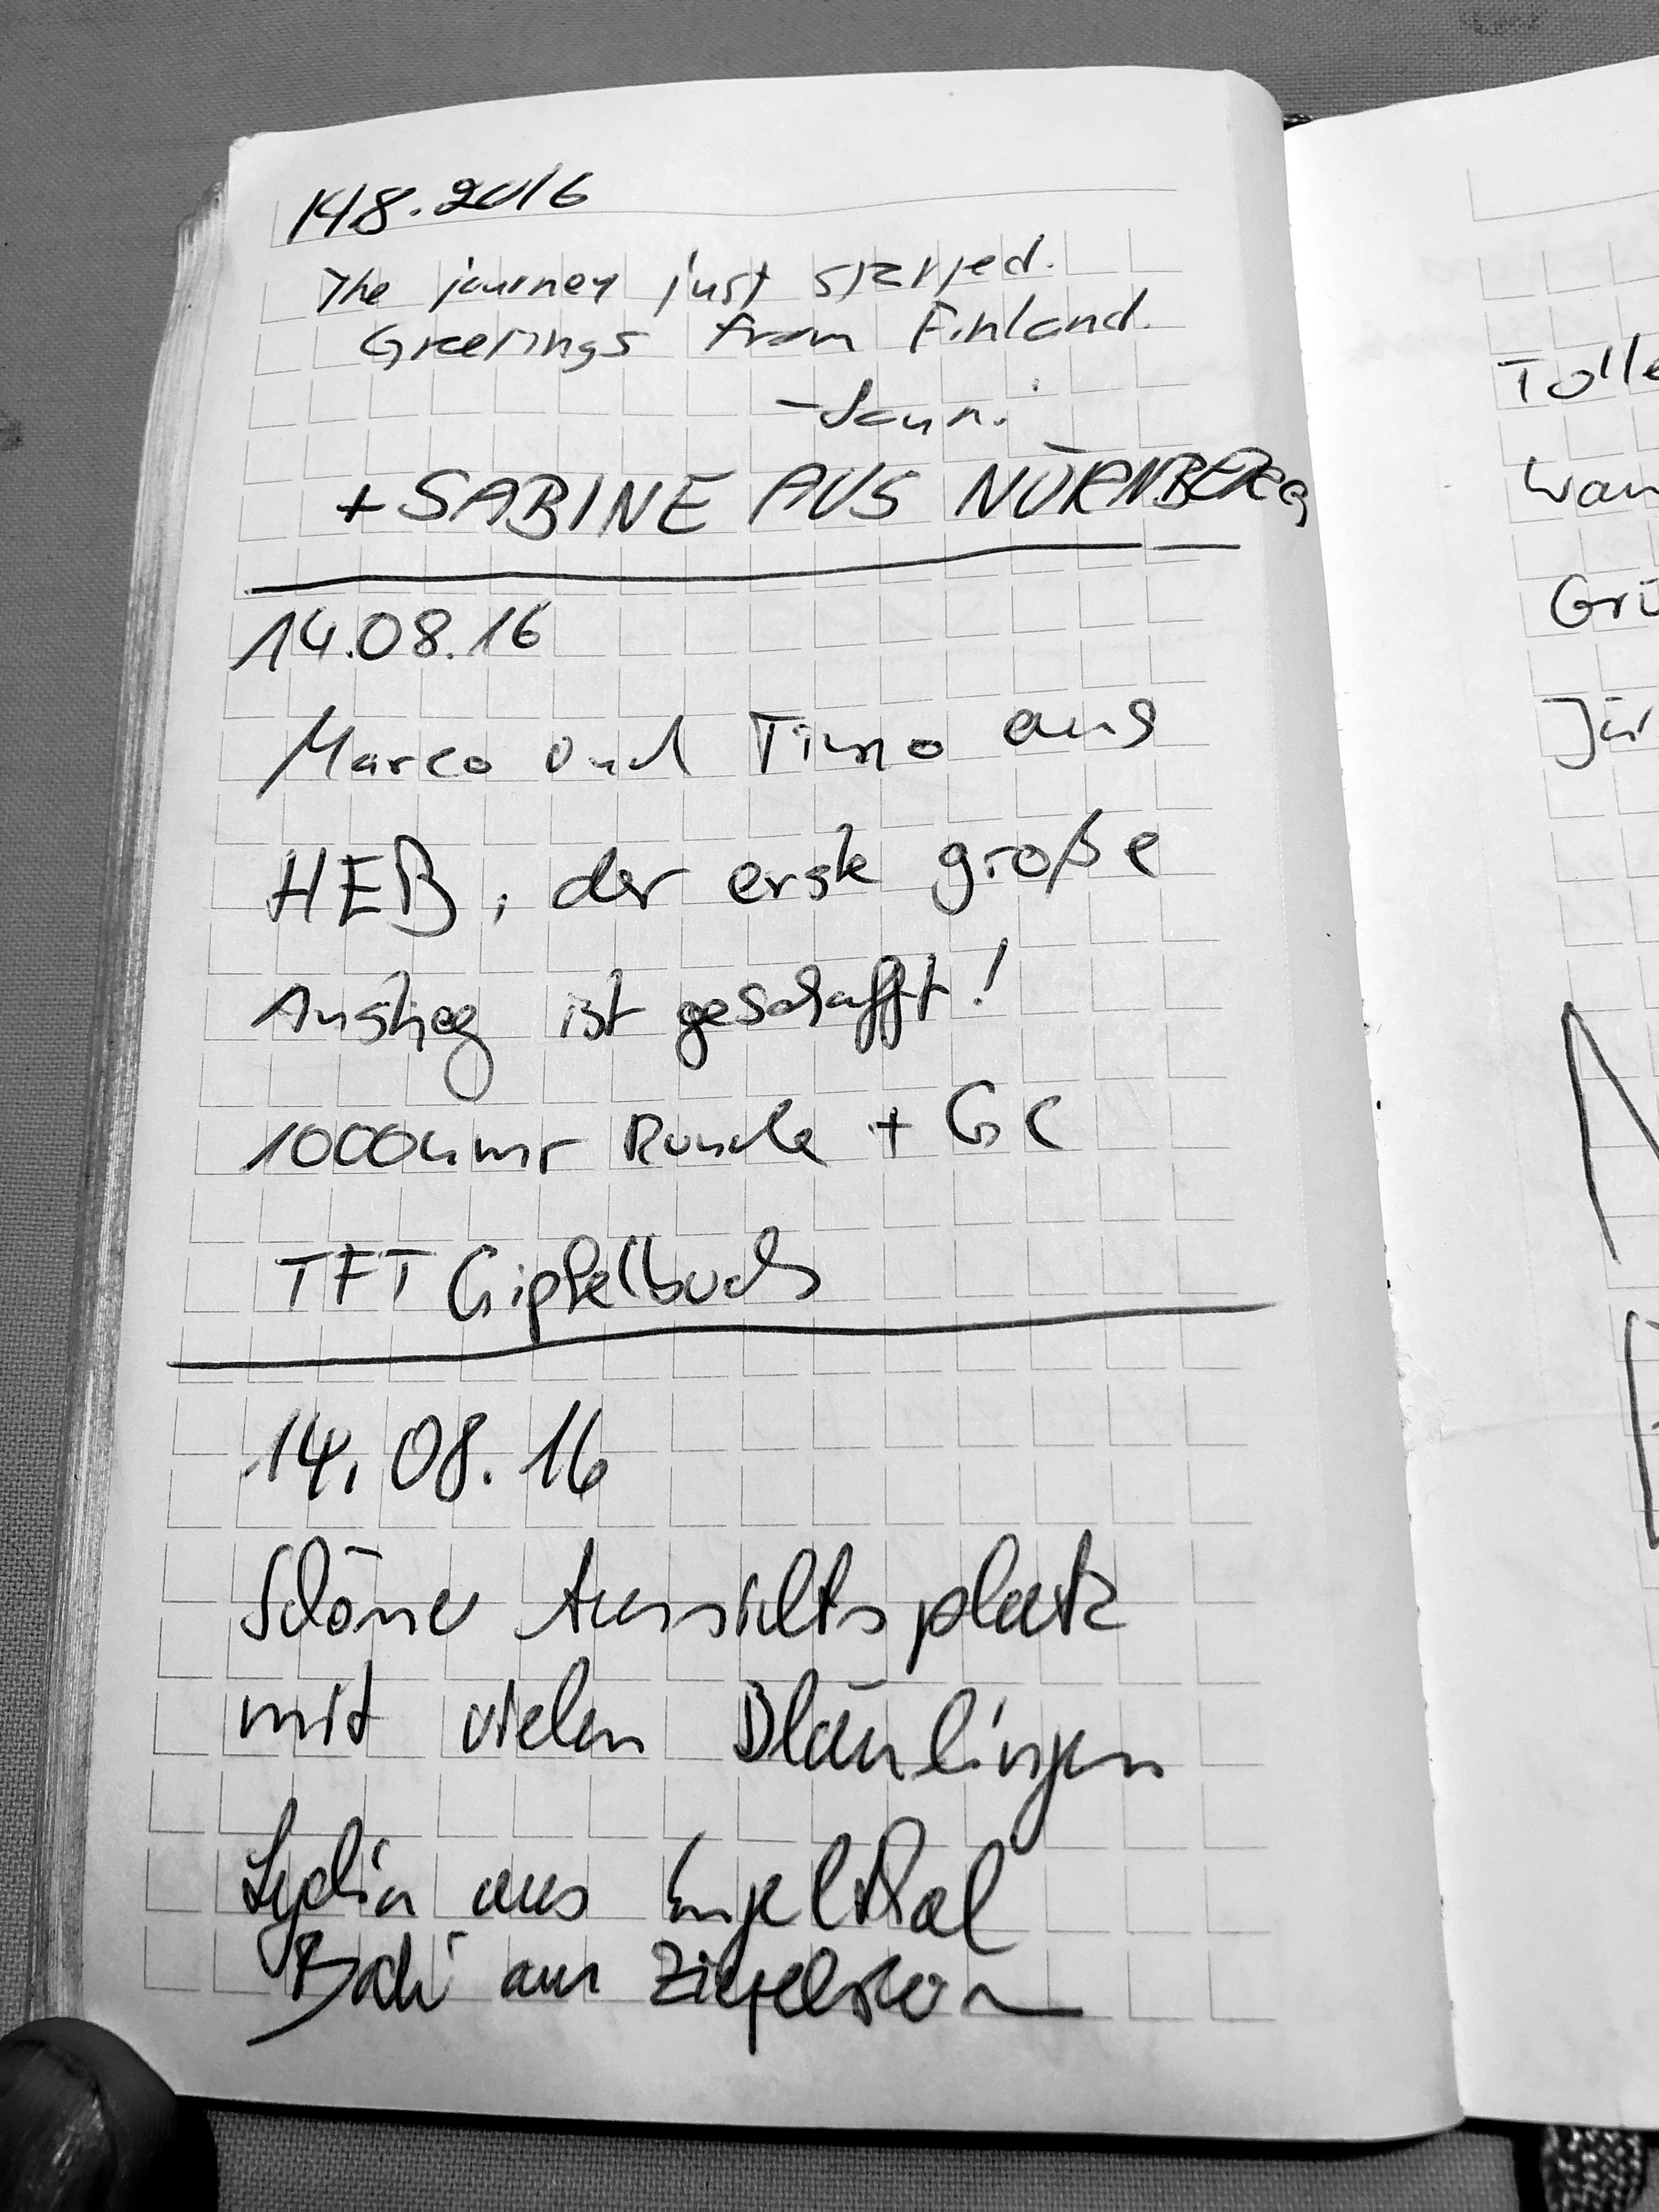 14.8.2016
The journey just started.
Greetings from Finland.
-Jouni
+ SABINE AUS NÜRNBERG
14.08.16
Marco und Timo aus
HEB, der erste große
Anstieg ist geschafft!
Runde + GC
TFT Gipfelbuch
14.08.16
Schöner Aussichtsplatz
mit vielen Bläulingen
Lydia aus Engelthal
aus Ziegelstein
Tolle
Wan
Grü
Jür